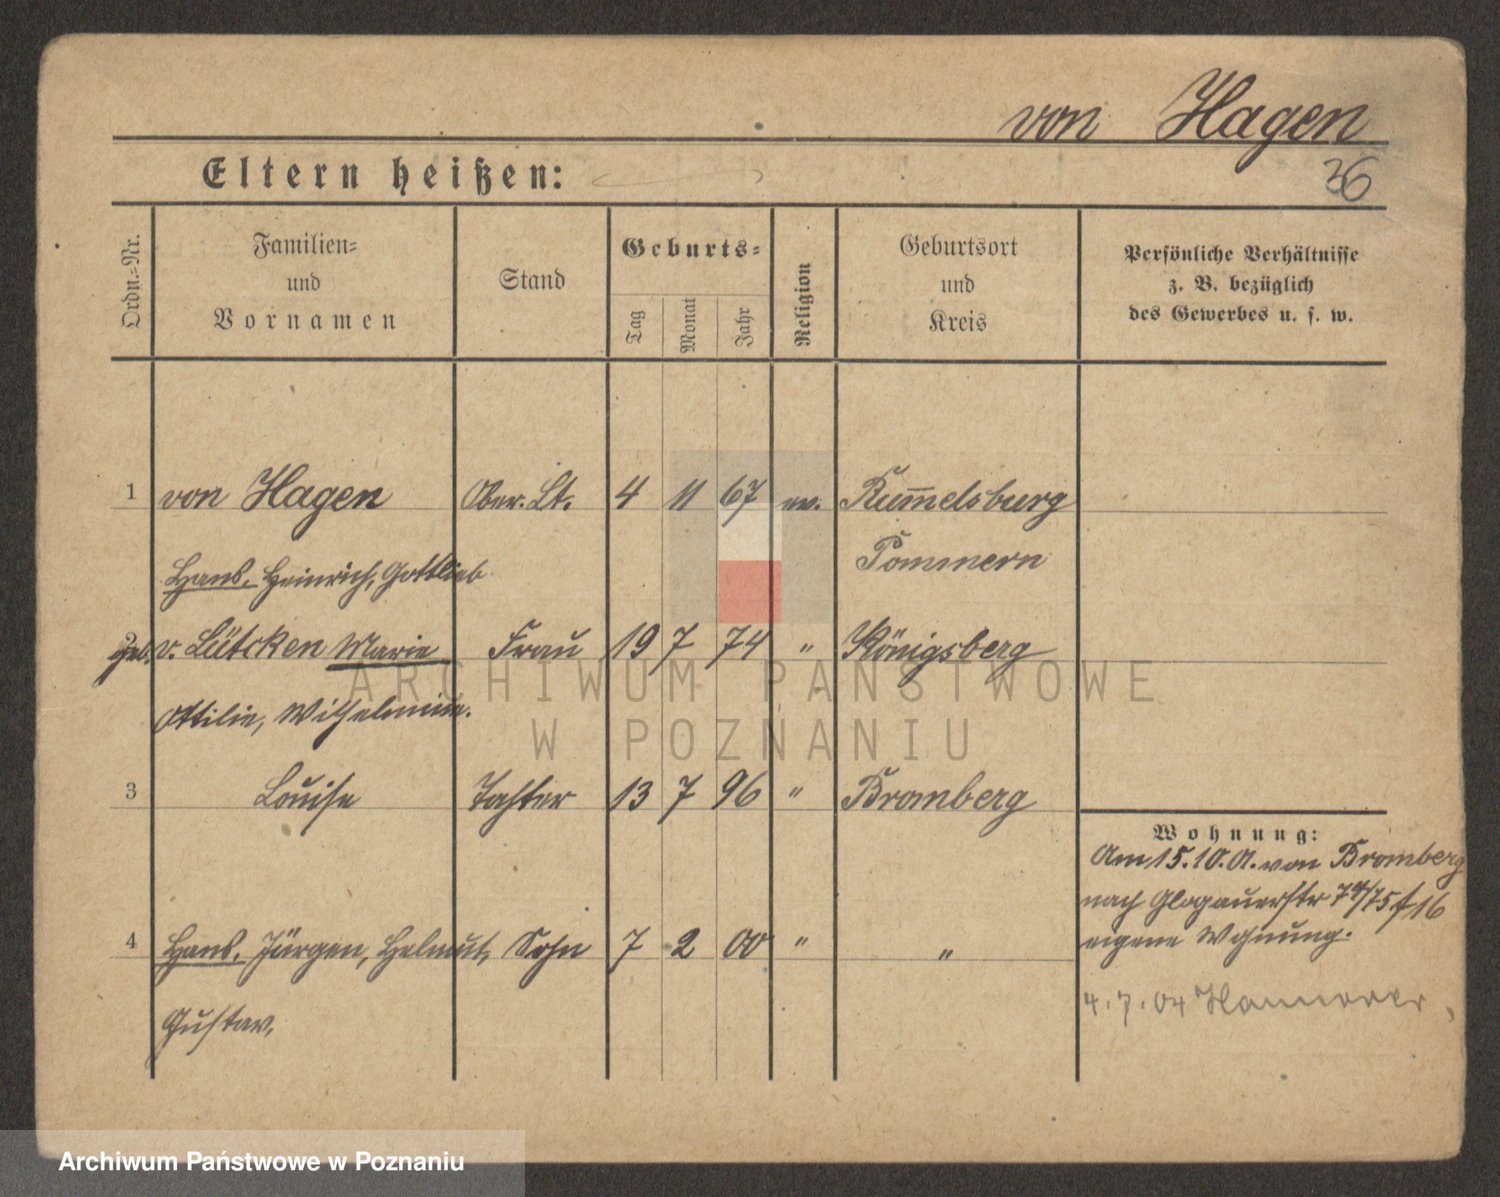 von Hagen
Eltern heißen:
36
Ordn.-Nr.
Familien-
und
Vornamen
Stand
Geburts-
Tag
Monat
Jahr
Religion
Geburtsort
und
Kreis
Persönliche Verhältnisse
z. B. bezüglich
des Gewerbes u. s. w.
1 von Hagen Ober. Lt. 4 11 67 ev. Rum̅elsburg
Hans, Heinrich, Gottlieb Pommern
2 geb. v. Lütcken Marie Frau 19 7 74 " Königsberg
Ottilie, Wilhelmine.
ARCHIWUM PAŃSTWOWE
W POZNANIU
3 Louise Tochter 13 7 96 " Bromberg
Wohnung:
Am 15.10.01. von Bromberg
nach Glogauerstr 74/75 f 16
eigene Wohnung.
4 Hans, Jürgen, Helmut, Sohn 7 2 00 " "
Gustav.
4.7.04 Hannover
Archiwum Państwowe w Poznaniu